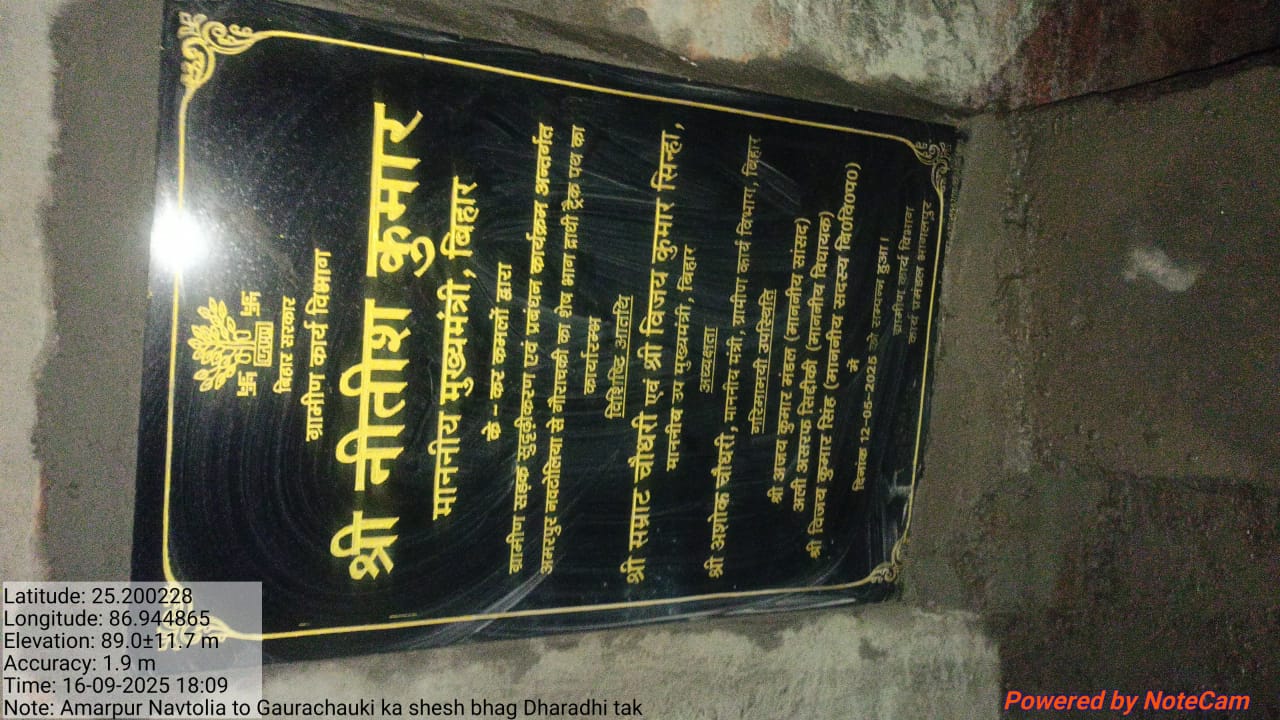 बिहार सरकार
ग्रामीण कार्य विभाग
श्री नीतीश कुमार
माननीय मुख्यमंत्री, बिहार
के - कर कमलों द्वारा
ग्रामीण सड़क सुदृढ़ीकरण एवं प्रबंधन कार्यक्रम अन्तर्गत
अमरपुर नवटोलिया से गौराचौकी का शेष भाग पथ का
कार्यारम्भ
विशिष्ट अतिथि
श्री सम्राट चौधरी एवं श्री विजय कुमार सिन्हा,
माननीय उप मुख्यमंत्री, बिहार
अध्यक्षता
श्री अशोक चौधरी, माननीय मंत्री, ग्रामीण कार्य विभाग, बिहार
गरिमामयी उपस्थिति
श्री अजय कुमार मंडल (माननीय सांसद)
अली असरफ सिद्दीकी (माननीय विधायक)
श्री विजय कुमार सिंह (माननीय सदस्य बि०वि०प०)
में
दिनांक 12-05-2025 को सम्पन्न हुआ।
ग्रामीण कार्य विभाग
कार्य प्रमंडल भागलपुर
Latitude: 25.200228
Longitude: 86.944865
Elevation: 89.0±11.7 m
Accuracy: 1.9 m
Time: 16-09-2025 18:09
Note: Amarpur Navtolia to Gaurachauki ka shesh bhag Dharadhi tak
Powered by NoteCam